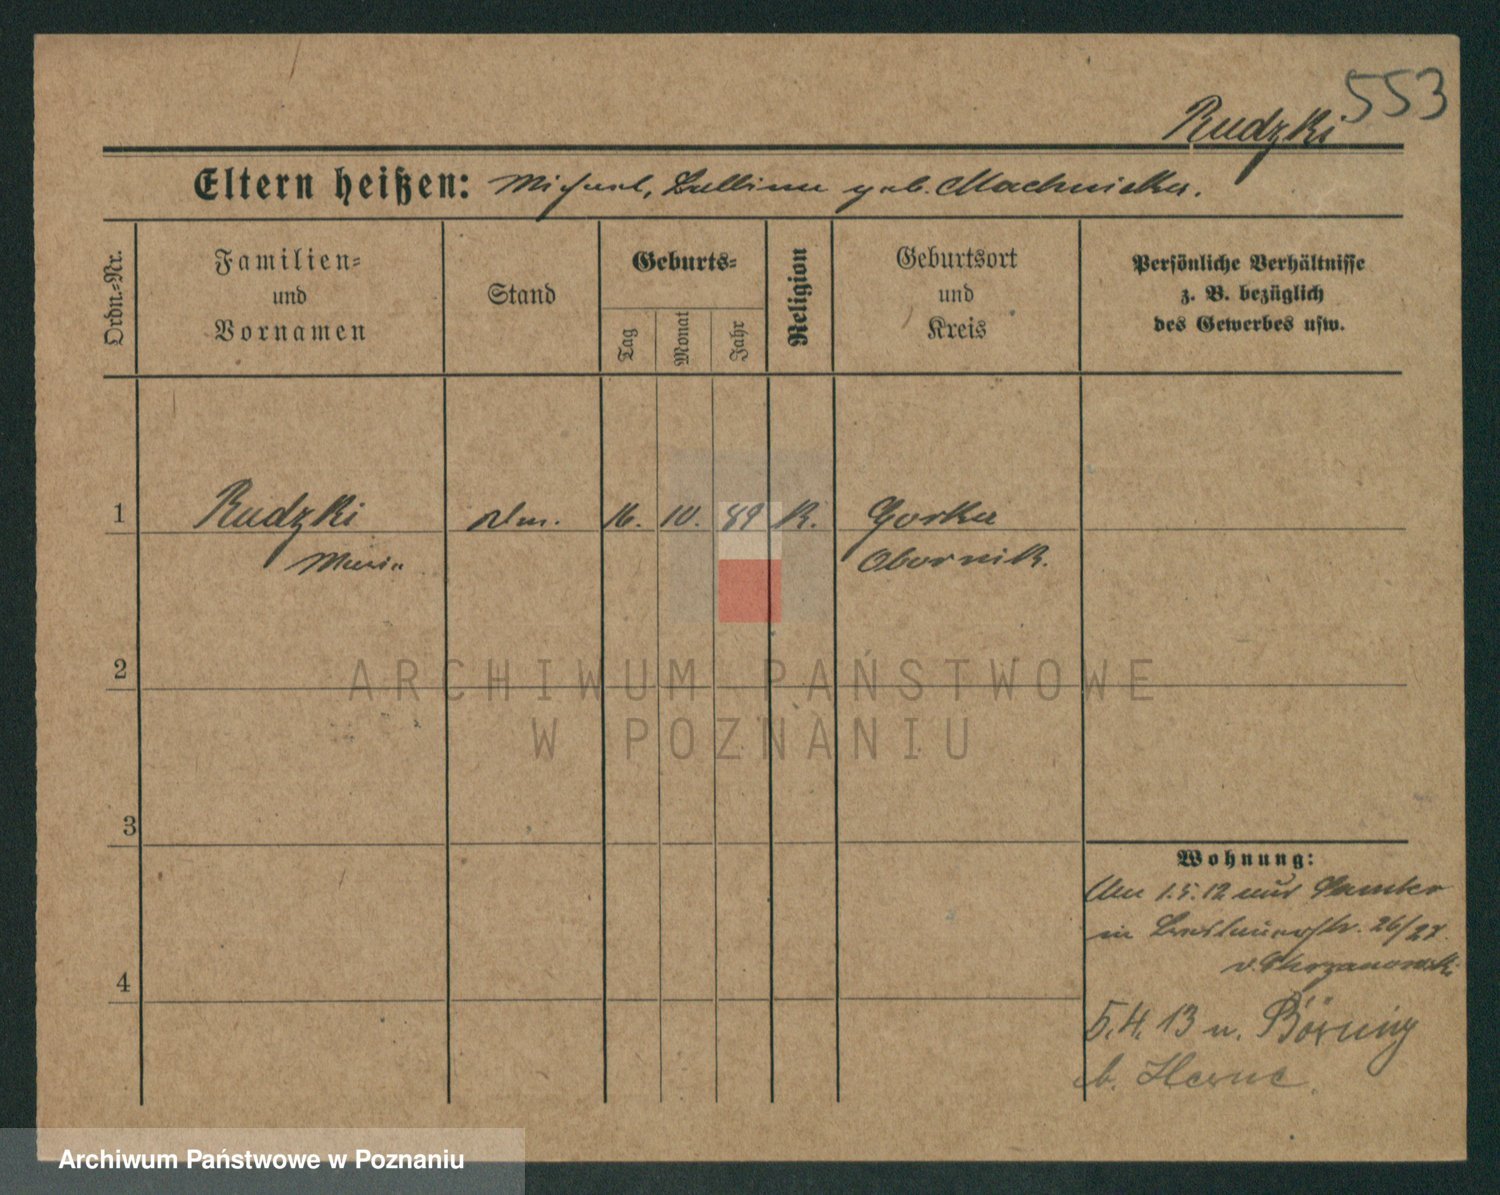 553
Rudzki
Eltern heißen: Michael, geb. Machnicka.
Ordn.-Nr.
Familien-
und
Vornamen
Stand
Geburts-
Tag
Monat
Jahr
Religion
Geburtsort
und
Kreis
Persönliche Verhältnisse
z. B. bezüglich
des Gewerbes usw.
1
Rudzki 16. 10. 89 K. Gorka
Obornik.
2
ARCHIWUM PAŃSTWOWE
W POZNANIU
3
Wohnung:
1.5.12 aus Samter
in 26/27.
v. Skrzanowski
4
5.4.13 n. Börnig
b. Herne
Archiwum Państwowe w Poznaniu